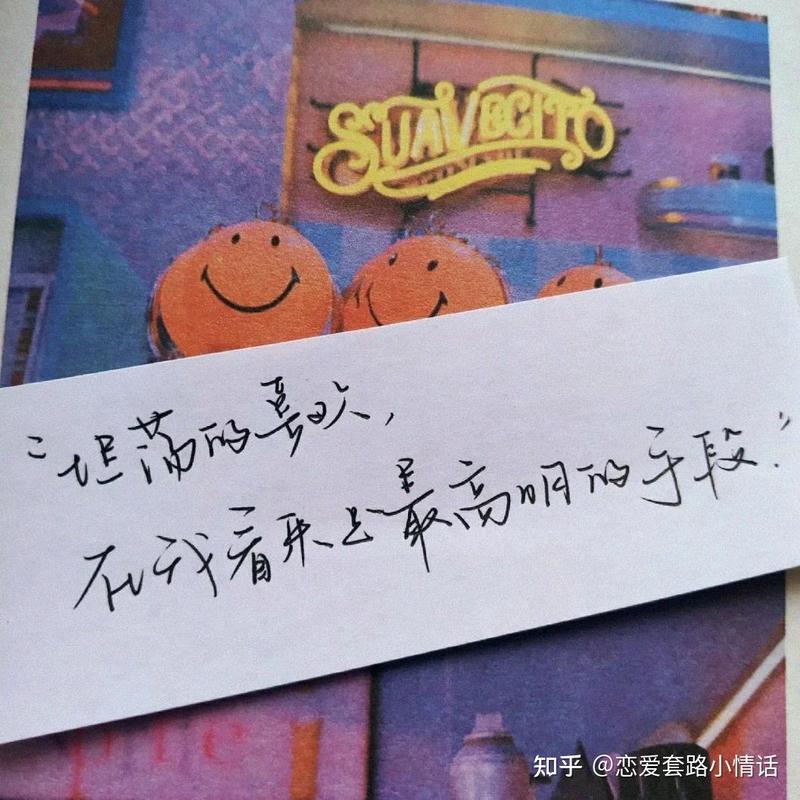 SUAVECITO
"坦荡的喜欢,
在我看来是最高明的手段."
知乎 @恋爱套路小情话